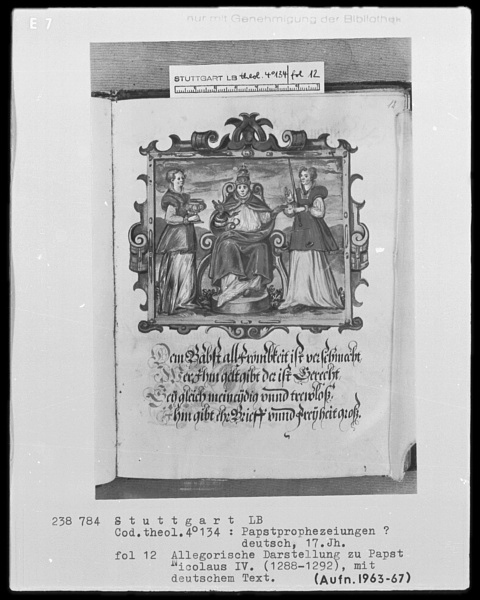 E 7
nur mit Genehmigung der Bibliothek
STUTTGART LB theol. 4° 134 fol 12
12
Dem Babst all Frombkeit ist verschmecht
Wer Ihm gelt gibt der ist Gerecht,
Seÿ gleich meineÿdig vnnd trewloß
Ihm gibt ehr Brieff vnnd Freÿheit groß.
238 784 Stuttgart LB
Cod.theol.4°134 : Papstprophezeiungen ?
deutsch, 17.Jh.
fol 12 Allegorische Darstellung zu Papst
Nicolaus IV. (1288-1292), mit
deutschem Text. (Aufn.1963-67)